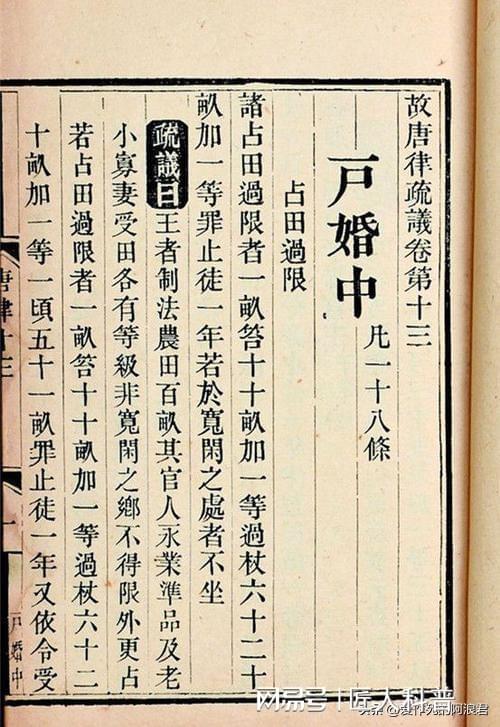 故唐律疏議卷第十三
戶婚中
凡一十八條
占田過限
諸占田過限者一畝笞十十畝加一等過杖六十二十
畝加一等罪止徒一年若於寬閑之處者不坐
疏議曰王者制法農田百畝其官人永業準品及老
小寡妻受田各有等級非寬閑之鄉不得限外更占
若占田過限者一畝笞十十畝加一等過杖六十二
十畝加一等一頃五十一畝罪止徒一年又依令受
唐律十三
一
戶婚中
网易号 | 匠人科普
头条
阿浪君